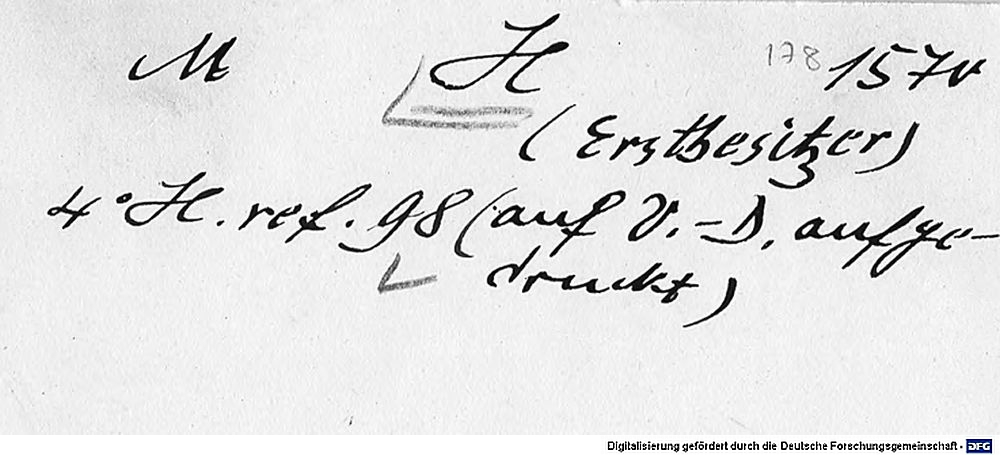 M H 178 1570
(Erstbesitzer)
4° H. ref. 98 (auf V.-D. aufge-
druckt)
Digitalisierung gefördert durch die Deutsche Forschungsgemeinschaft - DFG